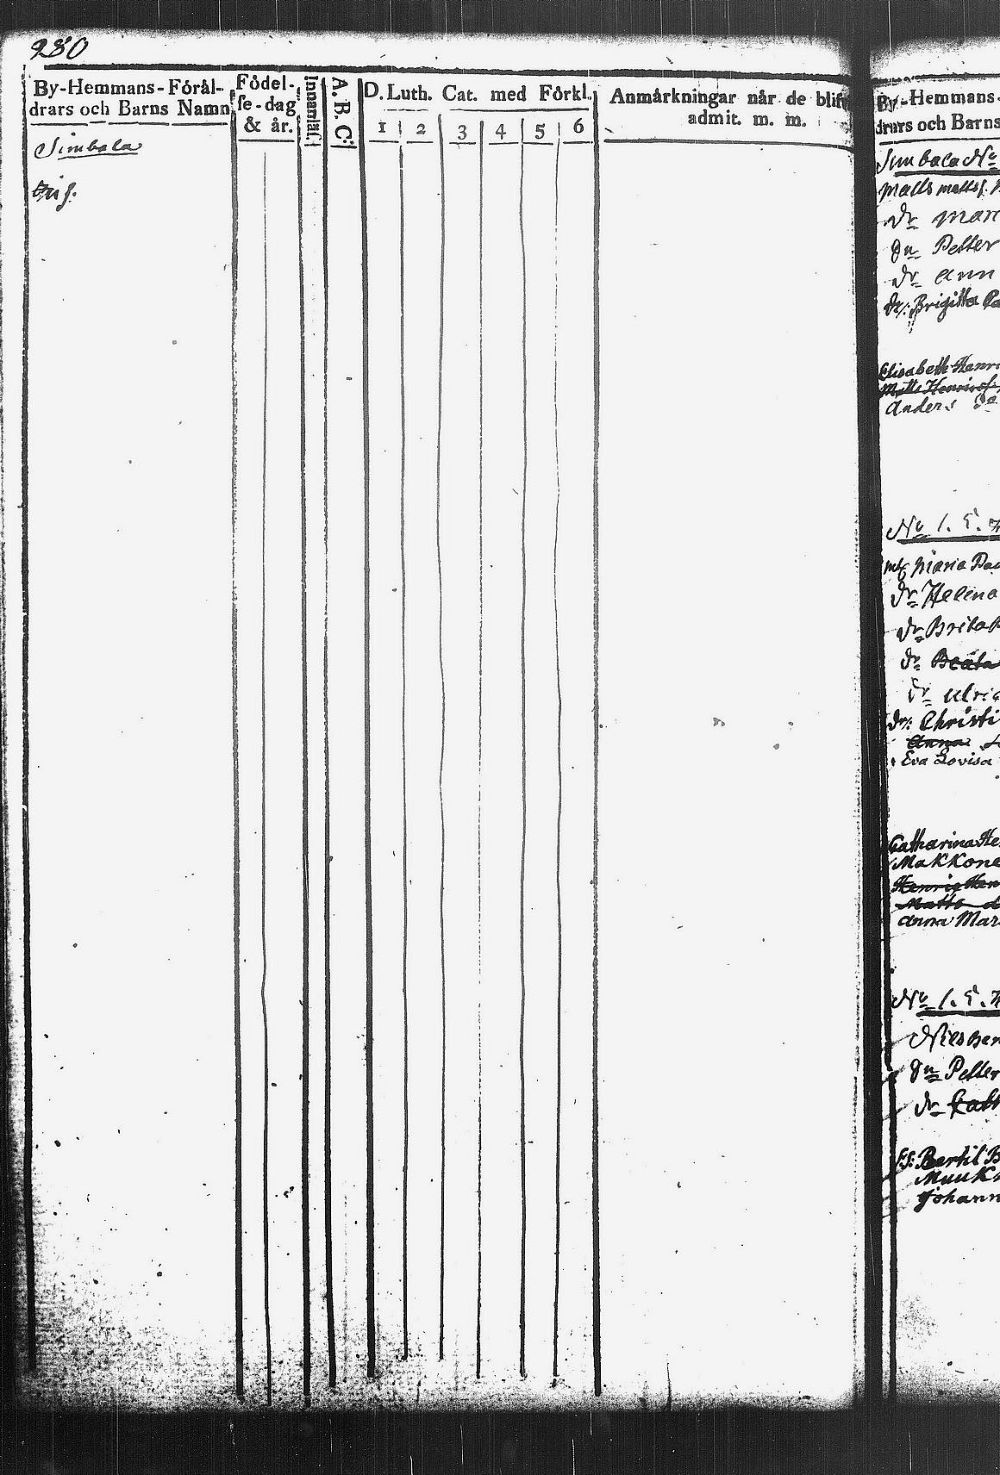 280
By-Hemmans-Föräl-
drars och Barns Namn
Födel-
se-dag
& år.
Innanläs:
A. B. C:
D. Luth. Cat. med Förkl.
1 2 3 4 5 6
Anmärkningar når de blif
admit. m. m.
Simbala
By-Hemmans-
drars och Barns
Simbala No
Matts Matts
dr
Petter
dr Ann
dr: Brigitta
Elisabeth Henri
Matts Henrics
Anders do
No 1.
Maria
dr Helena
dr Brita
dr Beata
dr Ulric
dr: Christi
Anna
Eva Lovisa
Catharina He
Makkone
Henric Hen
Matts
Anna Mar
No 1.
Nils
Petter
dr
Bertil B
Muuk
Johann